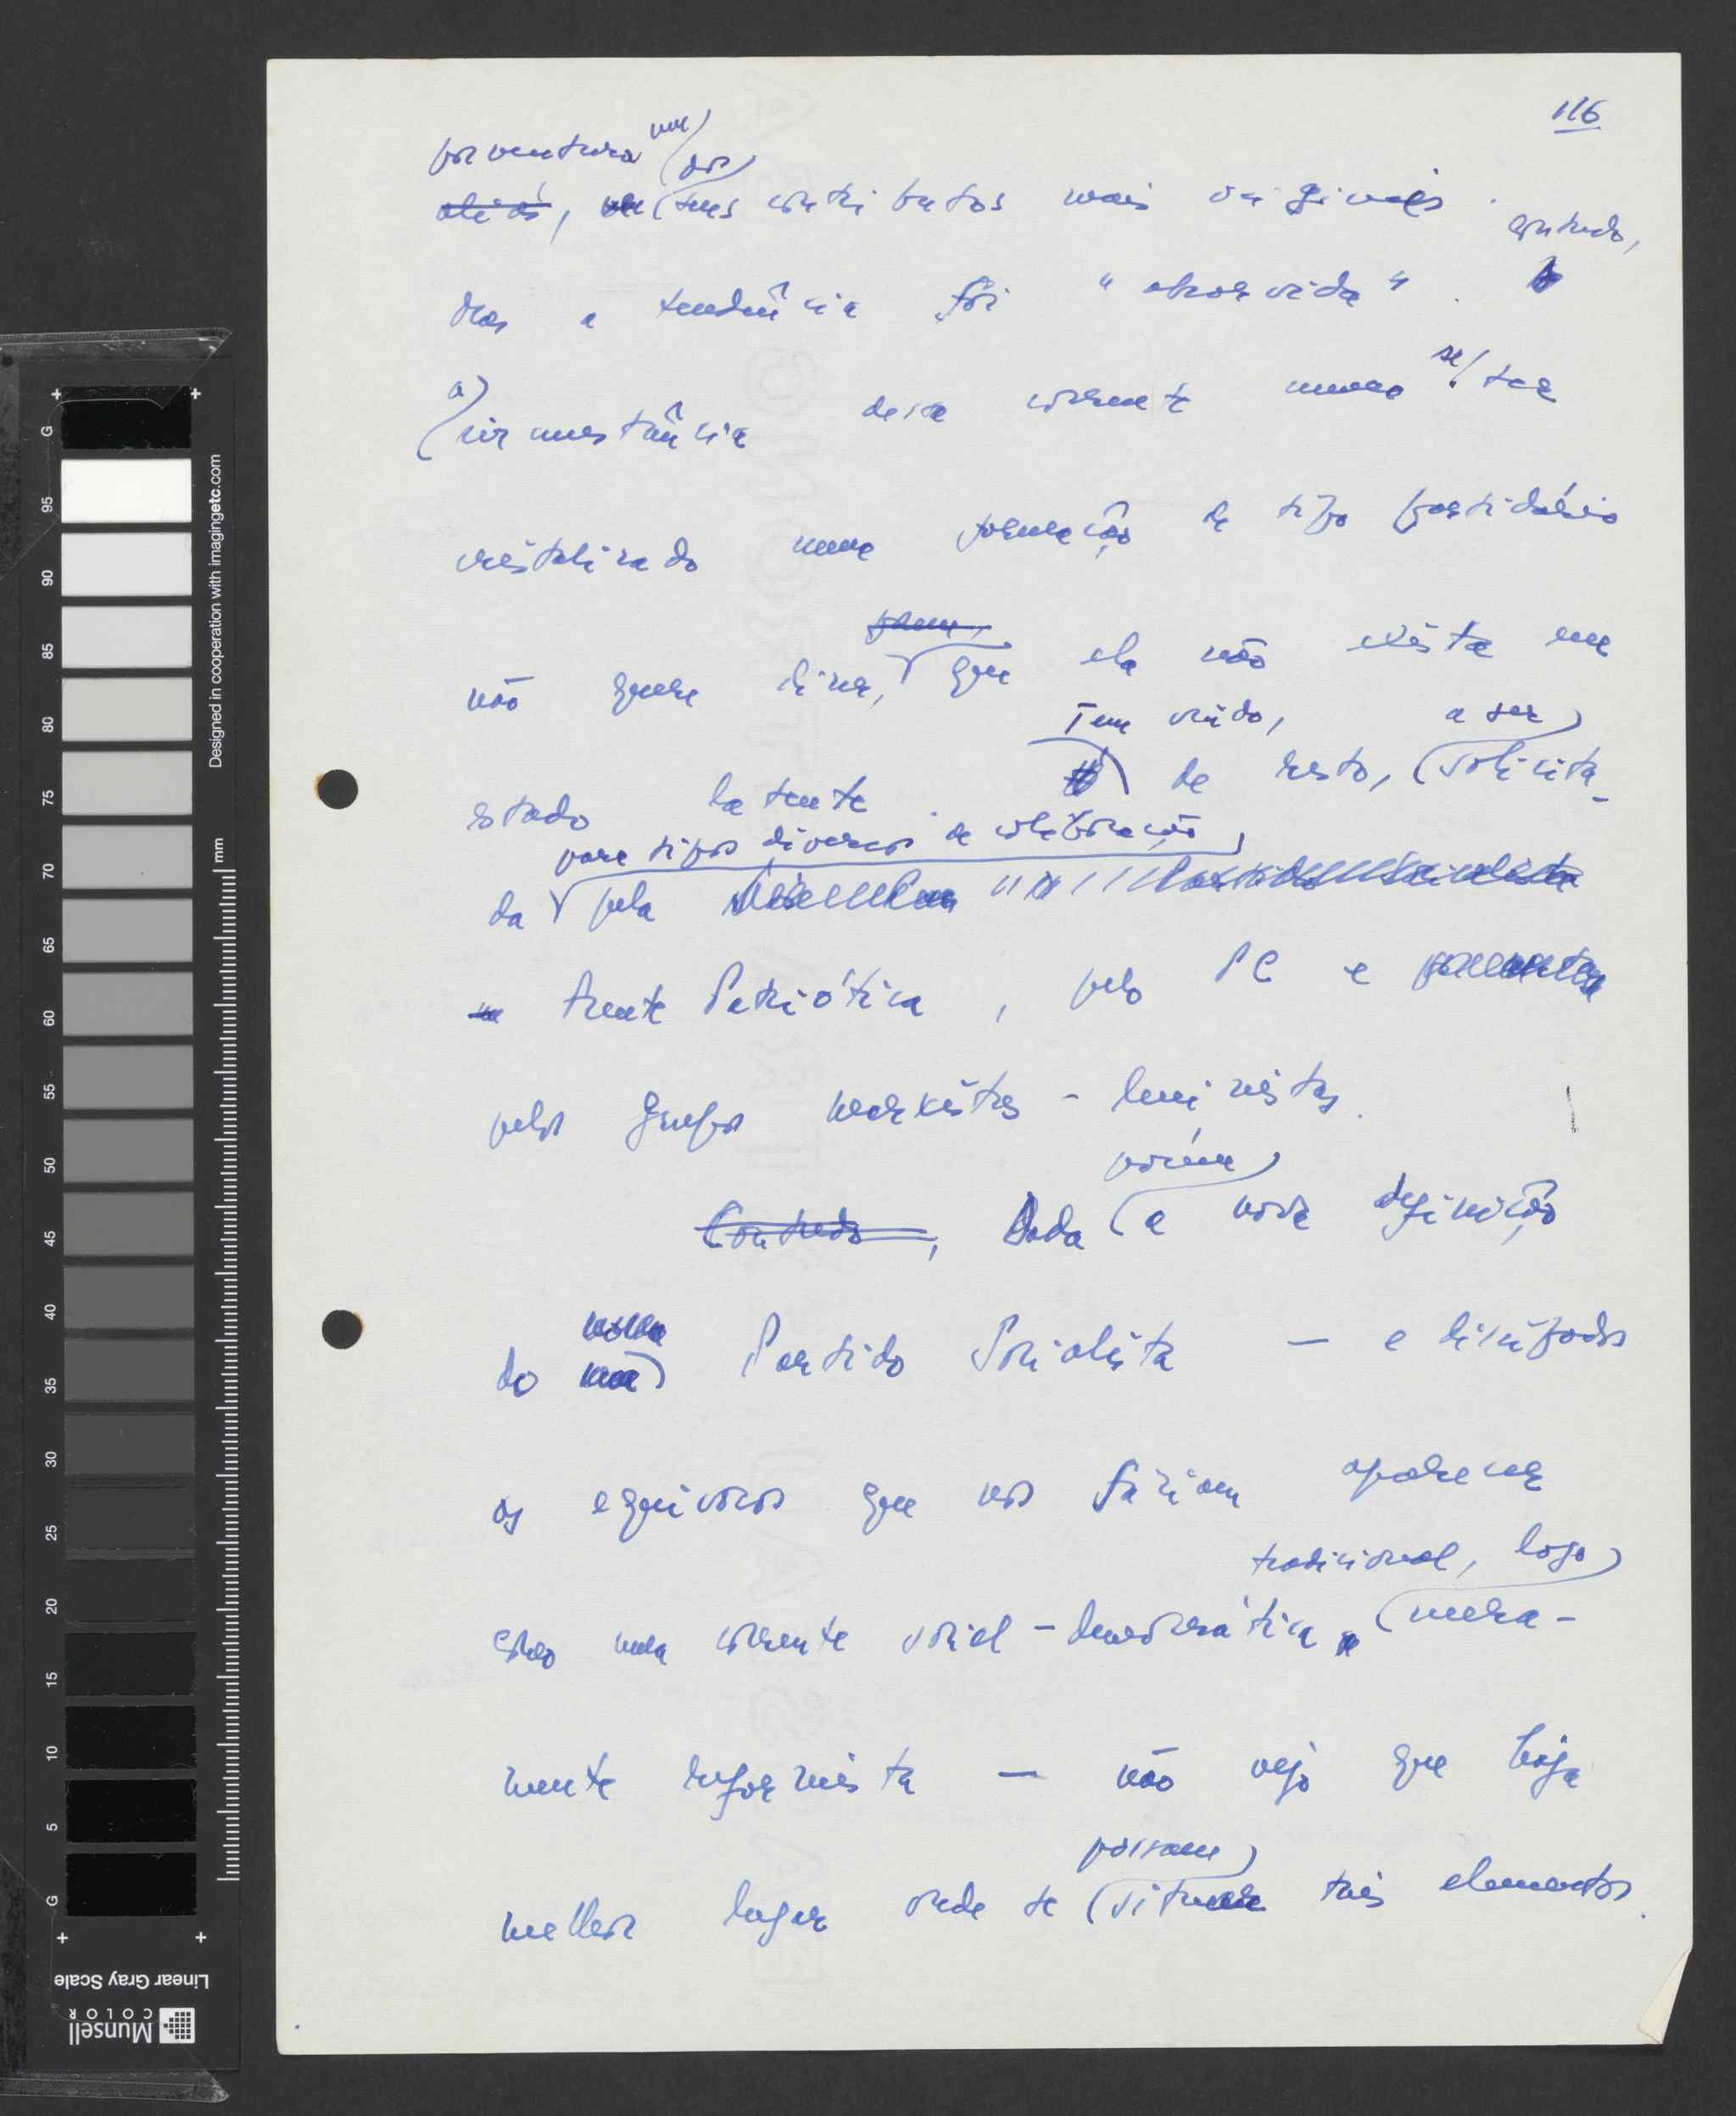 116
porventura um dos
aliás, seus contributos mais originais.
contudo,
Mas a tendência foi "absorvida".
a circunstância dessa corrente nunca se ter
cristalizado numa formação de tipo partidário
não quere dizer, que ela não exista em
Tem vindo, a ser
estado latente. de resto, solicita-
para tipos diversos de colaboração
da pela
Frente Patriótica, pelo PC e
pelos grupos marxistas-leninistas.
porém
Contudo, Dada a nova definição
do Partido Socialista — e dissipados
os equívocos que nos faziam aparecer
tradicional, logo
como uma corrente social-democrática mera-
mente reformista — não vejo que haja
possam
melhor lugar onde se situar tais elementos.
Designed in cooperation with imagingetc.com
mm
G
95
90
85
80
75
70
65
60
55
50
45
40
35
30
25
20
15
10
5
G
Linear Gray Scale
Munsell
COLOR